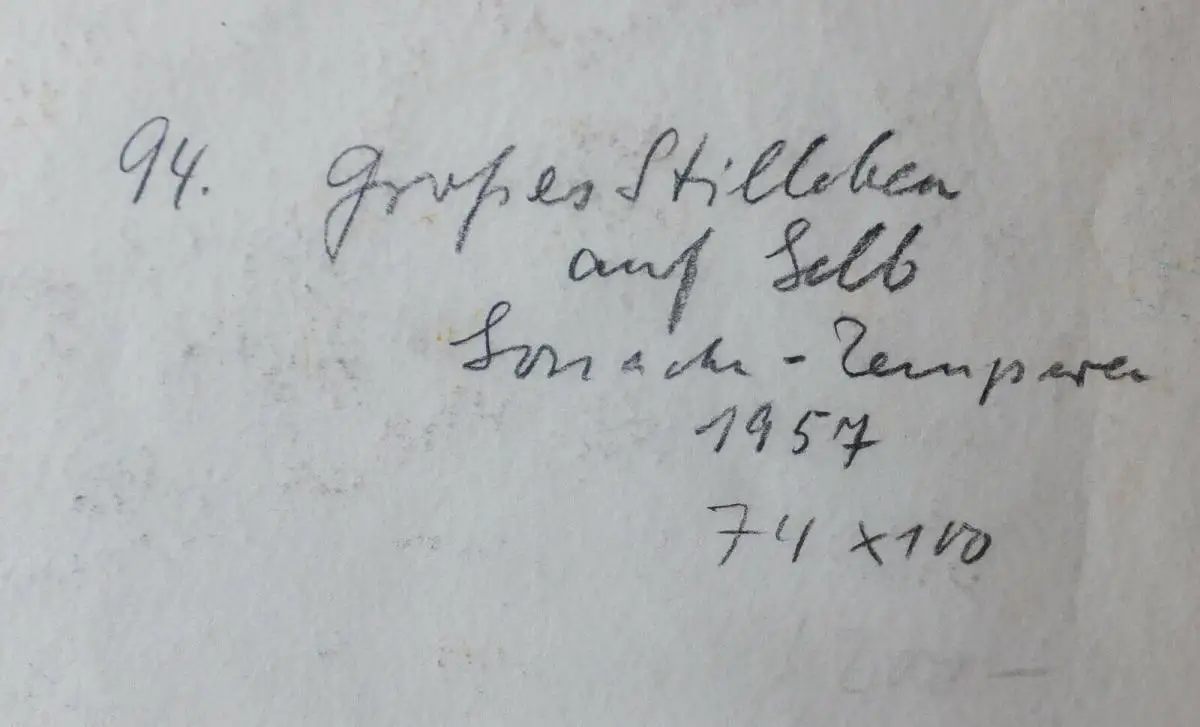 94. Großes Stilleben
auf Gelb
Gouache - Tempera
1957
74 x 100